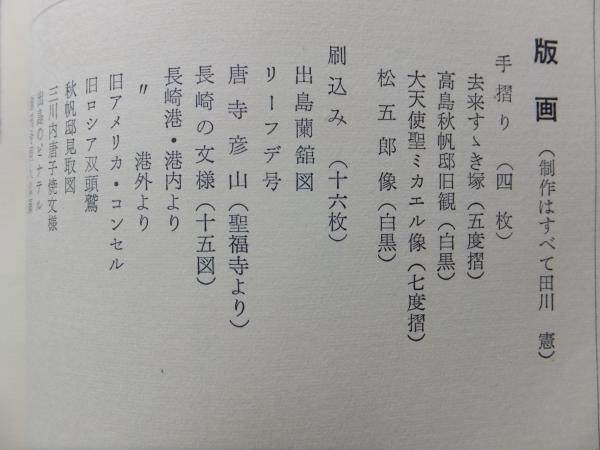 版画(制作はすべて田川 憲)
手摺り(四枚)
去来すゝき塚(五度摺)
高島秋帆邸旧観(白黒)
大天使聖ミカエル像(七度摺)
松五郎像(白黒)
刷込み(十六枚)
出島蘭舘図
リーフデ号
唐寺彦山(聖福寺より)
長崎の文様(十五図)
長崎港・港内より
〃 港外より
旧アメリカ・コンセル
旧ロシア双頭鷲
秋帆邸見取図
三川内唐子焼文様
出島のピナテル